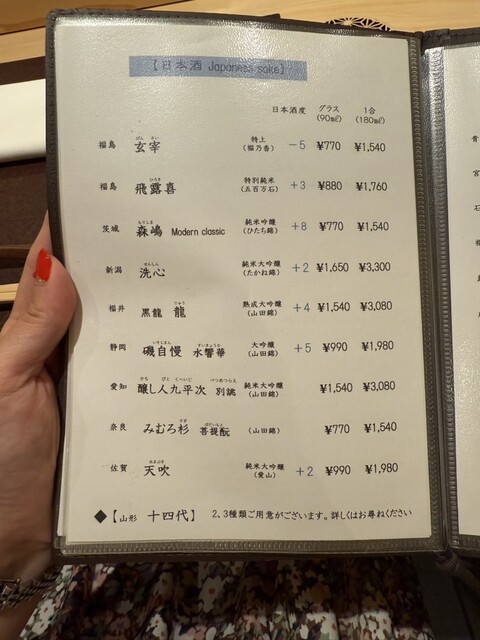 【日本酒 Japanese sake】
日本酒度 グラス(90㎖) 1合(180㎖)
福島 玄宰 特上(福乃香) －5 ¥770 ¥1,540
福島 飛露喜 特別純米(五百万石) ＋3 ¥880 ¥1,760
茨城 森嶋 Modern classic 純米吟醸(ひたち錦) ＋8 ¥770 ¥1,540
新潟 洗心 純米大吟醸(たかね錦) ＋2 ¥1,650 ¥3,300
福井 黒龍 龍 熟成大吟醸(山田錦) ＋4 ¥1,540 ¥3,080
静岡 磯自慢 水響華 大吟醸(山田錦) ＋5 ¥990 ¥1,980
愛知 醸し人九平次 別誂 純米大吟醸(山田錦) ¥1,540 ¥3,080
奈良 みむろ杉 菩提酛 (山田錦) ¥770 ¥1,540
佐賀 天吹 純米大吟醸(愛山) ＋2 ¥990 ¥1,980
◆【山形 十四代】 2、3種類ご用意がございます。詳しくはお尋ねください